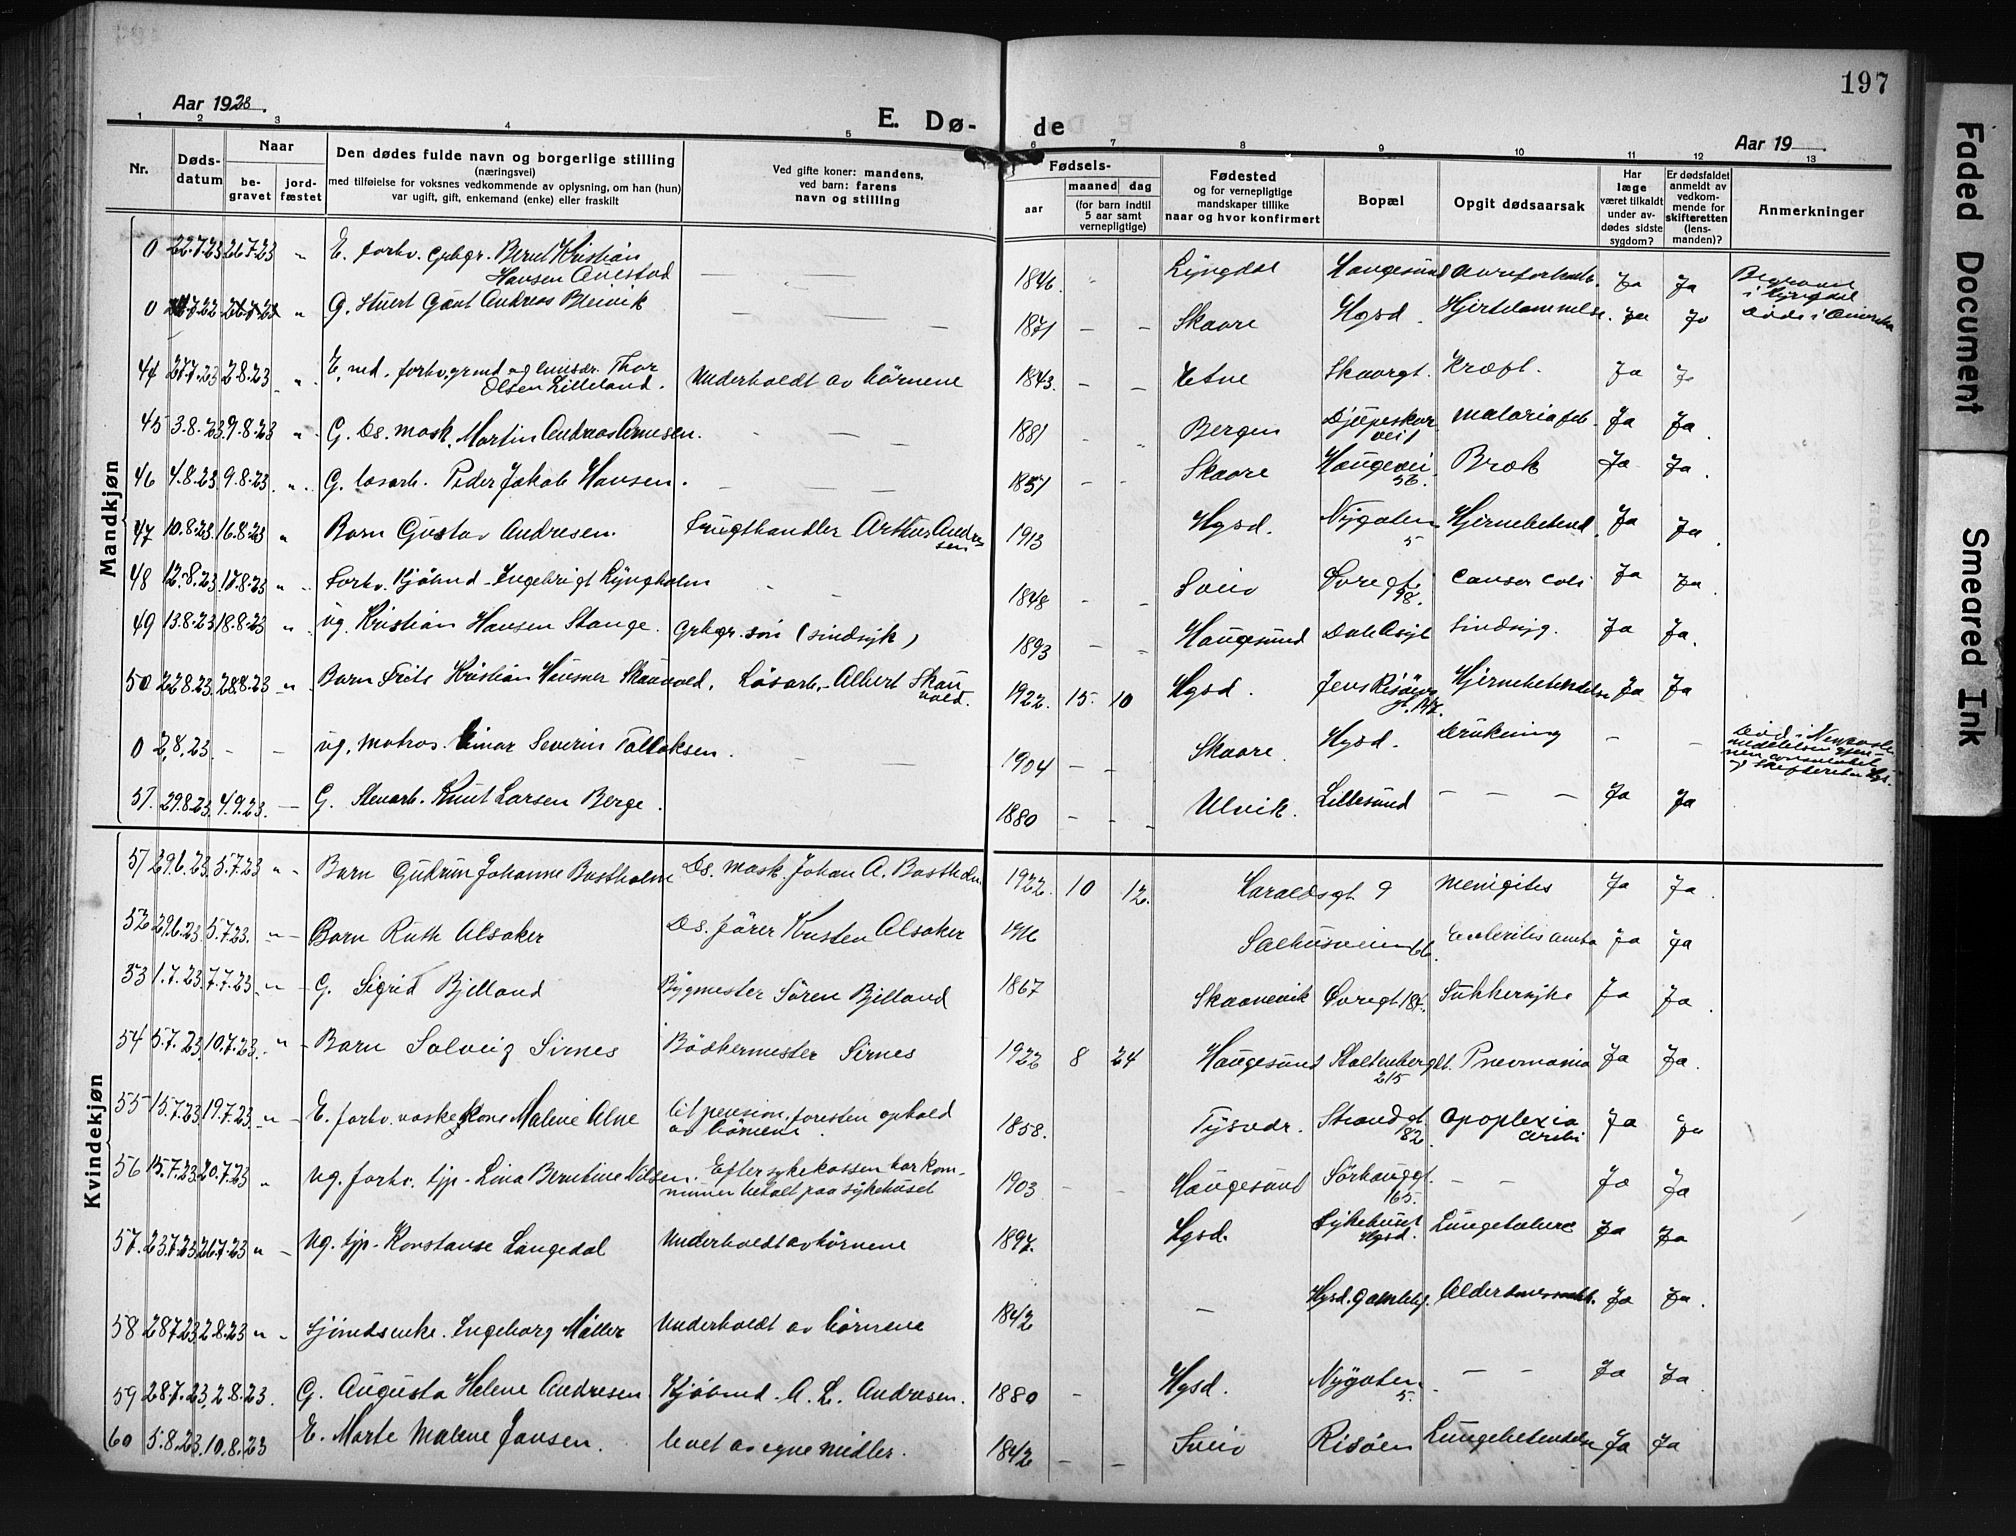 197
Aar 1928.
E. Dø-
de
Aar 19
1 2 3 4 5 6 7 8 9 10 11 12 13
Nr.
Døds-
datum
Naar
be-
gravet
jord-
fæstet
Den dødes fulde navn og borgerlige stilling
(næringsvei)
med tilføielse for voksnes vedkommende av oplysning, om han (hun)
var ugift, gift, enkemand (enke) eller fraskilt
Ved gifte koner: mandens,
ved barn: farens
navn og stilling
Fødsels-
aar
maaned
dag
(for barn indtil
5 aar samt
vernepligtige)
Fødested
og for vernepligtige
mandskaper tillike
naar og hvor konfirmert
Bopæl
Opgit dødsaarsak
Har
læge
været tilkaldt
under av-
dødes sidste
sygdom?
Er dødsfaldet
anmeldt av
vedkom-
mende for
skifteretten
(lens-
manden)?
Anmerkninger
Mandkjøn
0 22.7.23 26.7.23 " E. forhv. grbgr. Bernt Kristian
Hansen — — 1846. " Lyngdal Haugesund Ja Ja
i Lyngdal
0 " G. Stuert Gaut Andreas Bleivik — — — 1871 – – Skaare Hgsd. Hjertelammelse. Ja Ja Døde i Amerika
44 27.7.23 2.8.23 " E. ned. forhv. grmd og Thor
Olsen Lilleland. Underholdt av børnene 1843. – – Etne Skaaregt. Kræft. Ja Ja
45 3.8.23 9.8.23 " G. Ds. mask. Martin Andreas Arnesen. – — — 1881 Bergen malariafeb. Ja Ja.
46 4.8.23 9.8.23 " G. løsarb. Peder Jakob Hansen. — — — 1851 – – Skaare Haugevei Brok Ja Ja.
56.
47 10.8.23 16.8.23 " Barn Gustav Andresen. Frugthandler Arthur Andre
sen 1913 Hgsd. Nygaten Hjernebetend. Ja Ja.
5
48 12.8.23 17.8.23 " Forhv. Kjøbmd. Ingebrigt Lyngholm – – 1848 – – Sveio Øvregt. Cancer coli Ja Ja
98.
49 13.8.23 18.8.23 " Ug. Kristian Hansen Stange. Grbgr. søn (sindsyk) 1893 – – Haugesund Dale Asyl Sindsyg. Ja Ja.
50 22.8.23 28.8.23 " Barn Frits Kristian Skauvold. Løsarb. Albert Skau
vold. 1922. 15. 10 Hgsd. Hjernebetendelse Ja Ja
0 2.8.23 – – Ug. matros. Einar Severin Tollaksen. – – 1904 – – Skaare. Hgsd. Drukning – –
51. 29.8.23. 4.9.23. — G. Stenarb. Knut Larsen Berge. 1880 – – Ulvik. Lillesund – – – Ja Ja
Kvindekjøn
51 29.6.23. 5.7.23 " Barn Gudrun Johanne Bastholm Ds. mask. Johan A. Bastholm. 1922. 10 12. Haraldsgt. 9 Menigites Ja Ja.
52 29.6.23. 5.7.23. " Barn Ruth Alsaker Ds. fører Kristen Alsaker Ja Ja
53 1.7.23 7.7.23 " G. Sigrid Bjelland Bygmester Søren Bjelland 1867 Skaanevik Øvregt. Sukkersyke Ja Ja.
54 5.7.23 10.7.23. " Barn Solveig Sirnes Bødkermester Sirnes 1922 8 24 Haugesund Stoltenberggt. Pneumonia Ja Ja.
215
55 15.7.23 19.7.23 " E. forhv. vaskekone Malene Alne pension, foresten ophold
av børnene. 1858. Tysvær. Strandgt. Apoplexia Ja Ja
182.
56 15.7.23 20.7.23 " Ug. forhv. tjp. Lina Berntine Nilsen. Efter sykekassen har kom-
munen betalt paa sykehuset 1903 – – Haugesund Sørhauggt. – – Ja Ja
165.
57. 23.7.23 26.7.23 " Ug. tjp. Konstanse Langedal Underholdt av børnene 1897. Hgsd. Sykehuset Lungetuberc Ja Ja
Hgsd.
58 28.7.23 2.8.23 " Sjømdsenke. Ingeborg Møller Underholdt av børnene 1842 – Ja Ja.
59 28.7.23. 2.8.23. G. Augusta Helene Andresen Kjøbmd. A. L. Andresen. 1880 – Hgsd. Nygaten – – Ja Ja
5.
60 5.8.23. 10.8.23 E. Marte Malene Jansen. levet av egne midler. 1842 – – Sveio Risøen Lungebetendelse Ja Ja
Faded Document
Smeared Ink